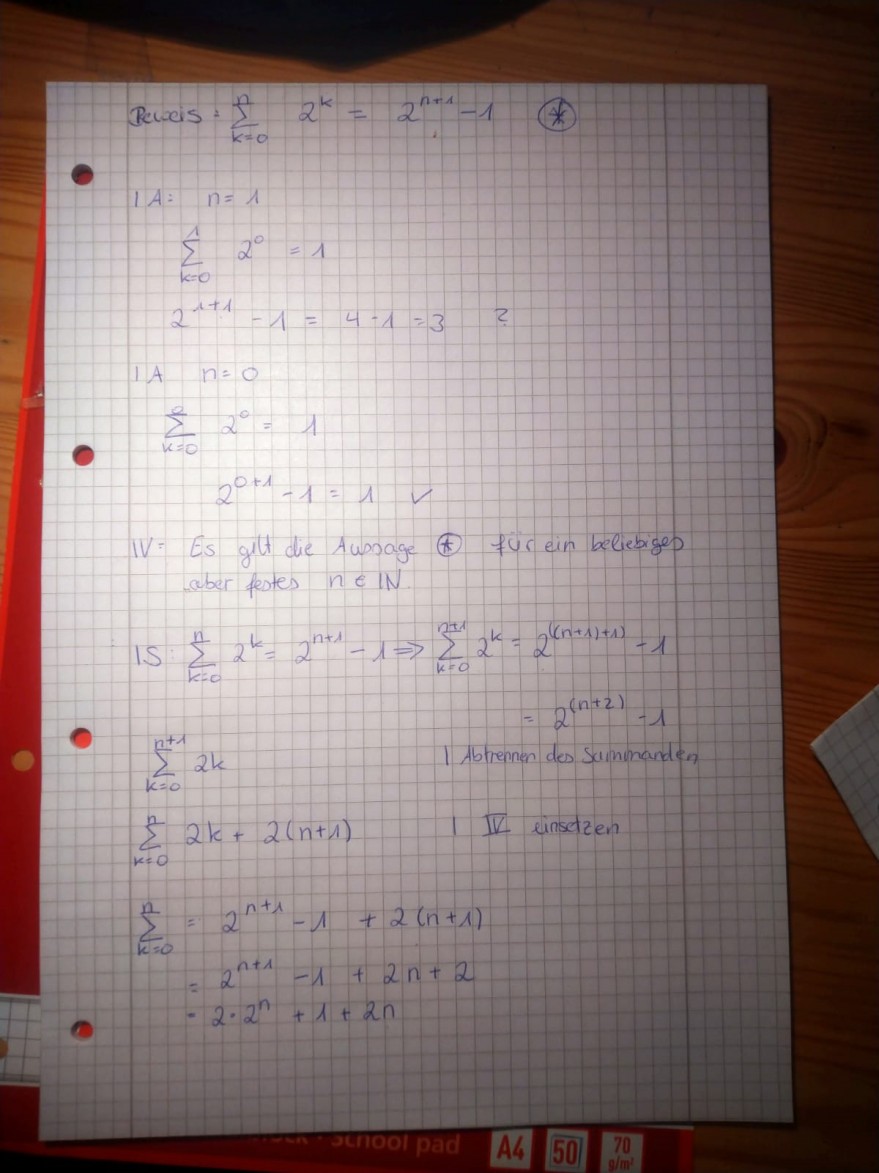 Beweis: ∑_{k=0}^{n} 2^k = 2^{n+1} - 1 ⊛
IA: n = 1
∑_{k=0}^{1} 2^0 = 1
2^{1+1} - 1 = 4 - 1 = 3 ?
IA n = 0
∑_{k=0}^{0} 2^0 = 1
2^{0+1} - 1 = 1 ✓
IV: Es gilt die Aussage ⊛ für ein beliebiges
aber festes n ∈ ℕ.
IS: ∑_{k=0}^{n} 2^k = 2^{n+1} - 1 => ∑_{k=0}^{n+1} 2^k = 2^{((n+1)+1)} - 1
= 2^{(n+2)} - 1
∑_{k=0}^{n+1} 2k | Abtrennen des Summanden
∑_{k=0}^{n} 2k + 2(n+1) | IV einsetzen
∑_{k=0}^{n} = 2^{n+1} - 1 + 2(n+1)
= 2^{n+1} - 1 + 2n + 2
= 2·2^n + 1 + 2n
School pad A4 50 70
g/m²